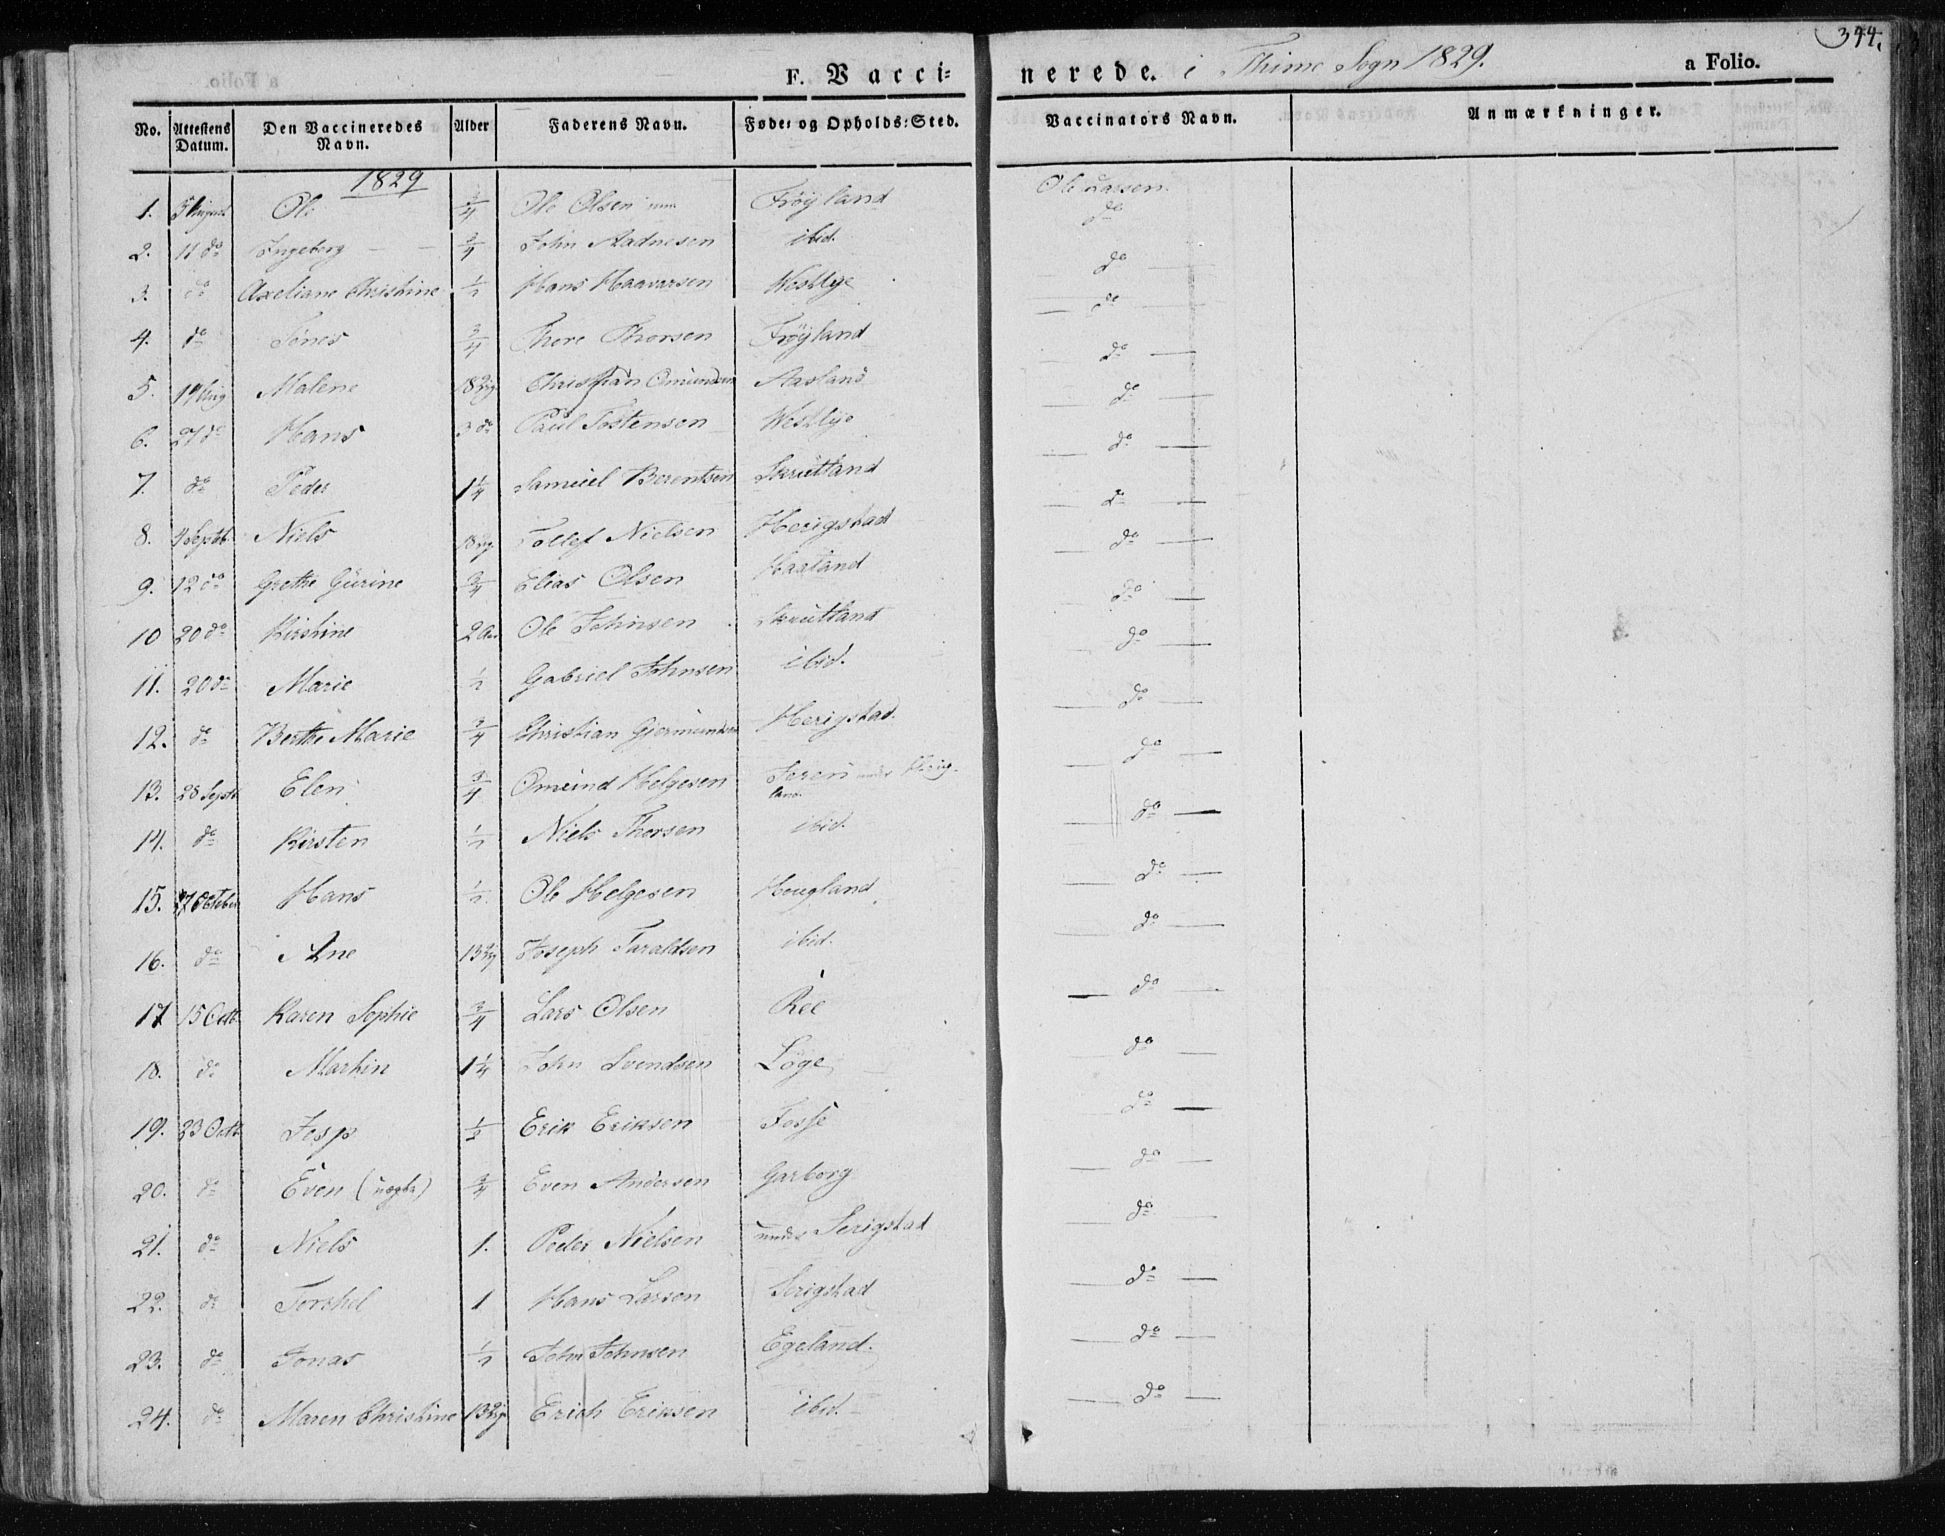 344.
F. Vaccinerede. i Thime Sogn 1829. a Folio.
No. Attestens Datum. Den Vaccineredes Navn. Alder Faderens Navn. Føde= og Opholds=Sted. Vaccinators Navn. Anmærkninger.
1829
1. 5 August Ole 3/4 Ole Olsen Frøyland Ole Larsen.
2. 11 do Ingeborg 3/4 John Aadnesen ibid. do
3. do Axeliane Christine 1/2 Hans Haavarsen Westlye do
4. do Tønes 3/4 Thore Thorsen Frøyland do
5. Aug Malene Christian Omundsen Aasland do
6. 27 do Hans 3 do Paul Tostensen Westlye do
7. do Peder 1 1/4 Samuel Berentsen Skrutland do
8. Septb. Niels Tollef Nielsen Herigstad do
9. 12 do Grethe Gurine 3/4 Elias Olsen Haaland do
10 20 do Kirstine 2 Ole Johnsen Skrutland do
11. 20 do Marie 1/2 Gabriel Johnsen ibid. do
12. do Berthe Marie 3/4 Christian Gjermundsen Herigstad. do
13. 28 Septb Elen 3/4 Omund Helgesen under land do
14. do Kirsten 1/2 Niels Thorsen ibid. do
15. 7 October Hans 1/2 Ole Helgesen Hougland do
16. do Ane Joseph Taraldsen ibid. do
17 15 Octb. Karen Sophie 3/4 Lars Olsen Ree do
18. do Martin 1 1/4 John Svendsen Løge do
19. 23 Octb Jesp 1/2 Erik Eriksen Fosse do
20. do Even (uægte) 3/4 Even Andersen Garborg do
21. do Niels 1. Peder Nielsen under Serigstad do
22. do Torkel 1 Hans Larsen Serigstad do
23. do Jonas 1/2 John Johnsen Egeland. do
24. do Maren Christine Erich Eriksen ibid. do